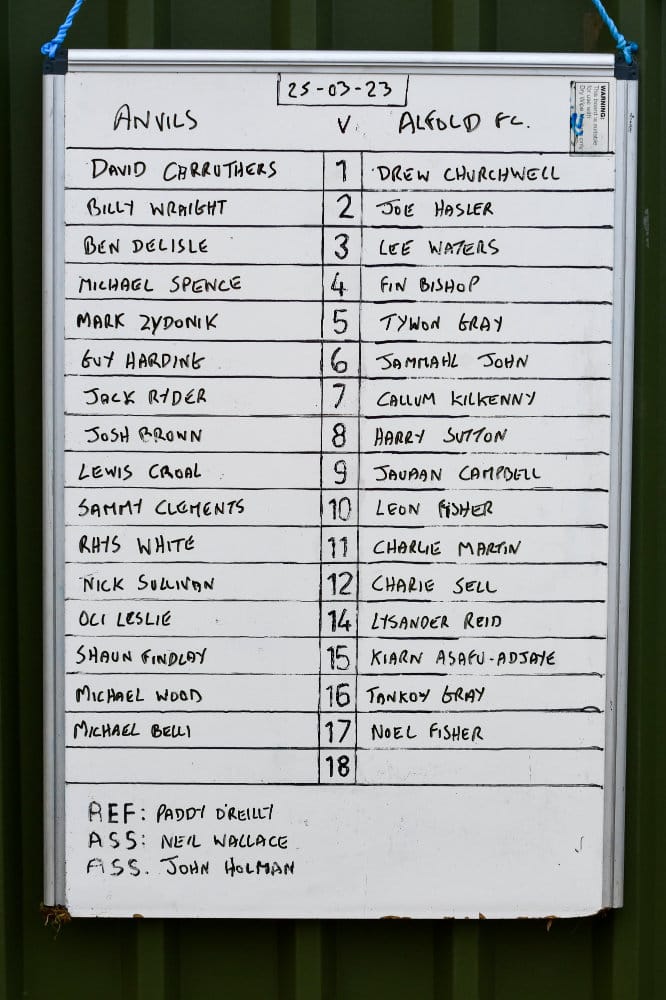 25-03-23
ANVILS V. ALFOLD FC.
WARNING:
This board is suitable
for use with
Dry Wipe only
DAVID CARRUTHERS 1 DREW CHURCHWELL
BILLY WRAIGHT 2 JOE HASLER
BEN DELISLE 3 LEE WATERS
MICHAEL SPENCE 4 FIN BISHOP
MARK ZYDONIK 5 TYWON GRAY
GUY HARDING 6 JAMMAHL JOHN
JACK RYDER 7 CALLUM KILKENNY
JOSH BROWN 8 HARRY SUTTON
LEWIS CROAL 9 JAVAAN CAMPBELL
SAMMY CLEMENTS 10 LEON FISHER
RHYS WHITE 11 CHARLIE MARTIN
NICK SULLIVAN 12 CHARIE SELL
OLI LESLIE 14 LYSANDER REID
SHAUN FINDLAY 15 KIARN ASAFU-ADJAYE
MICHAEL WOOD 16 TANKOY GRAY
MICHAEL BELLI 17 NOEL FISHER
18
REF: PADDY O'REILLY
ASS: NEIL WALLACE
ASS. JOHN HOLMAN